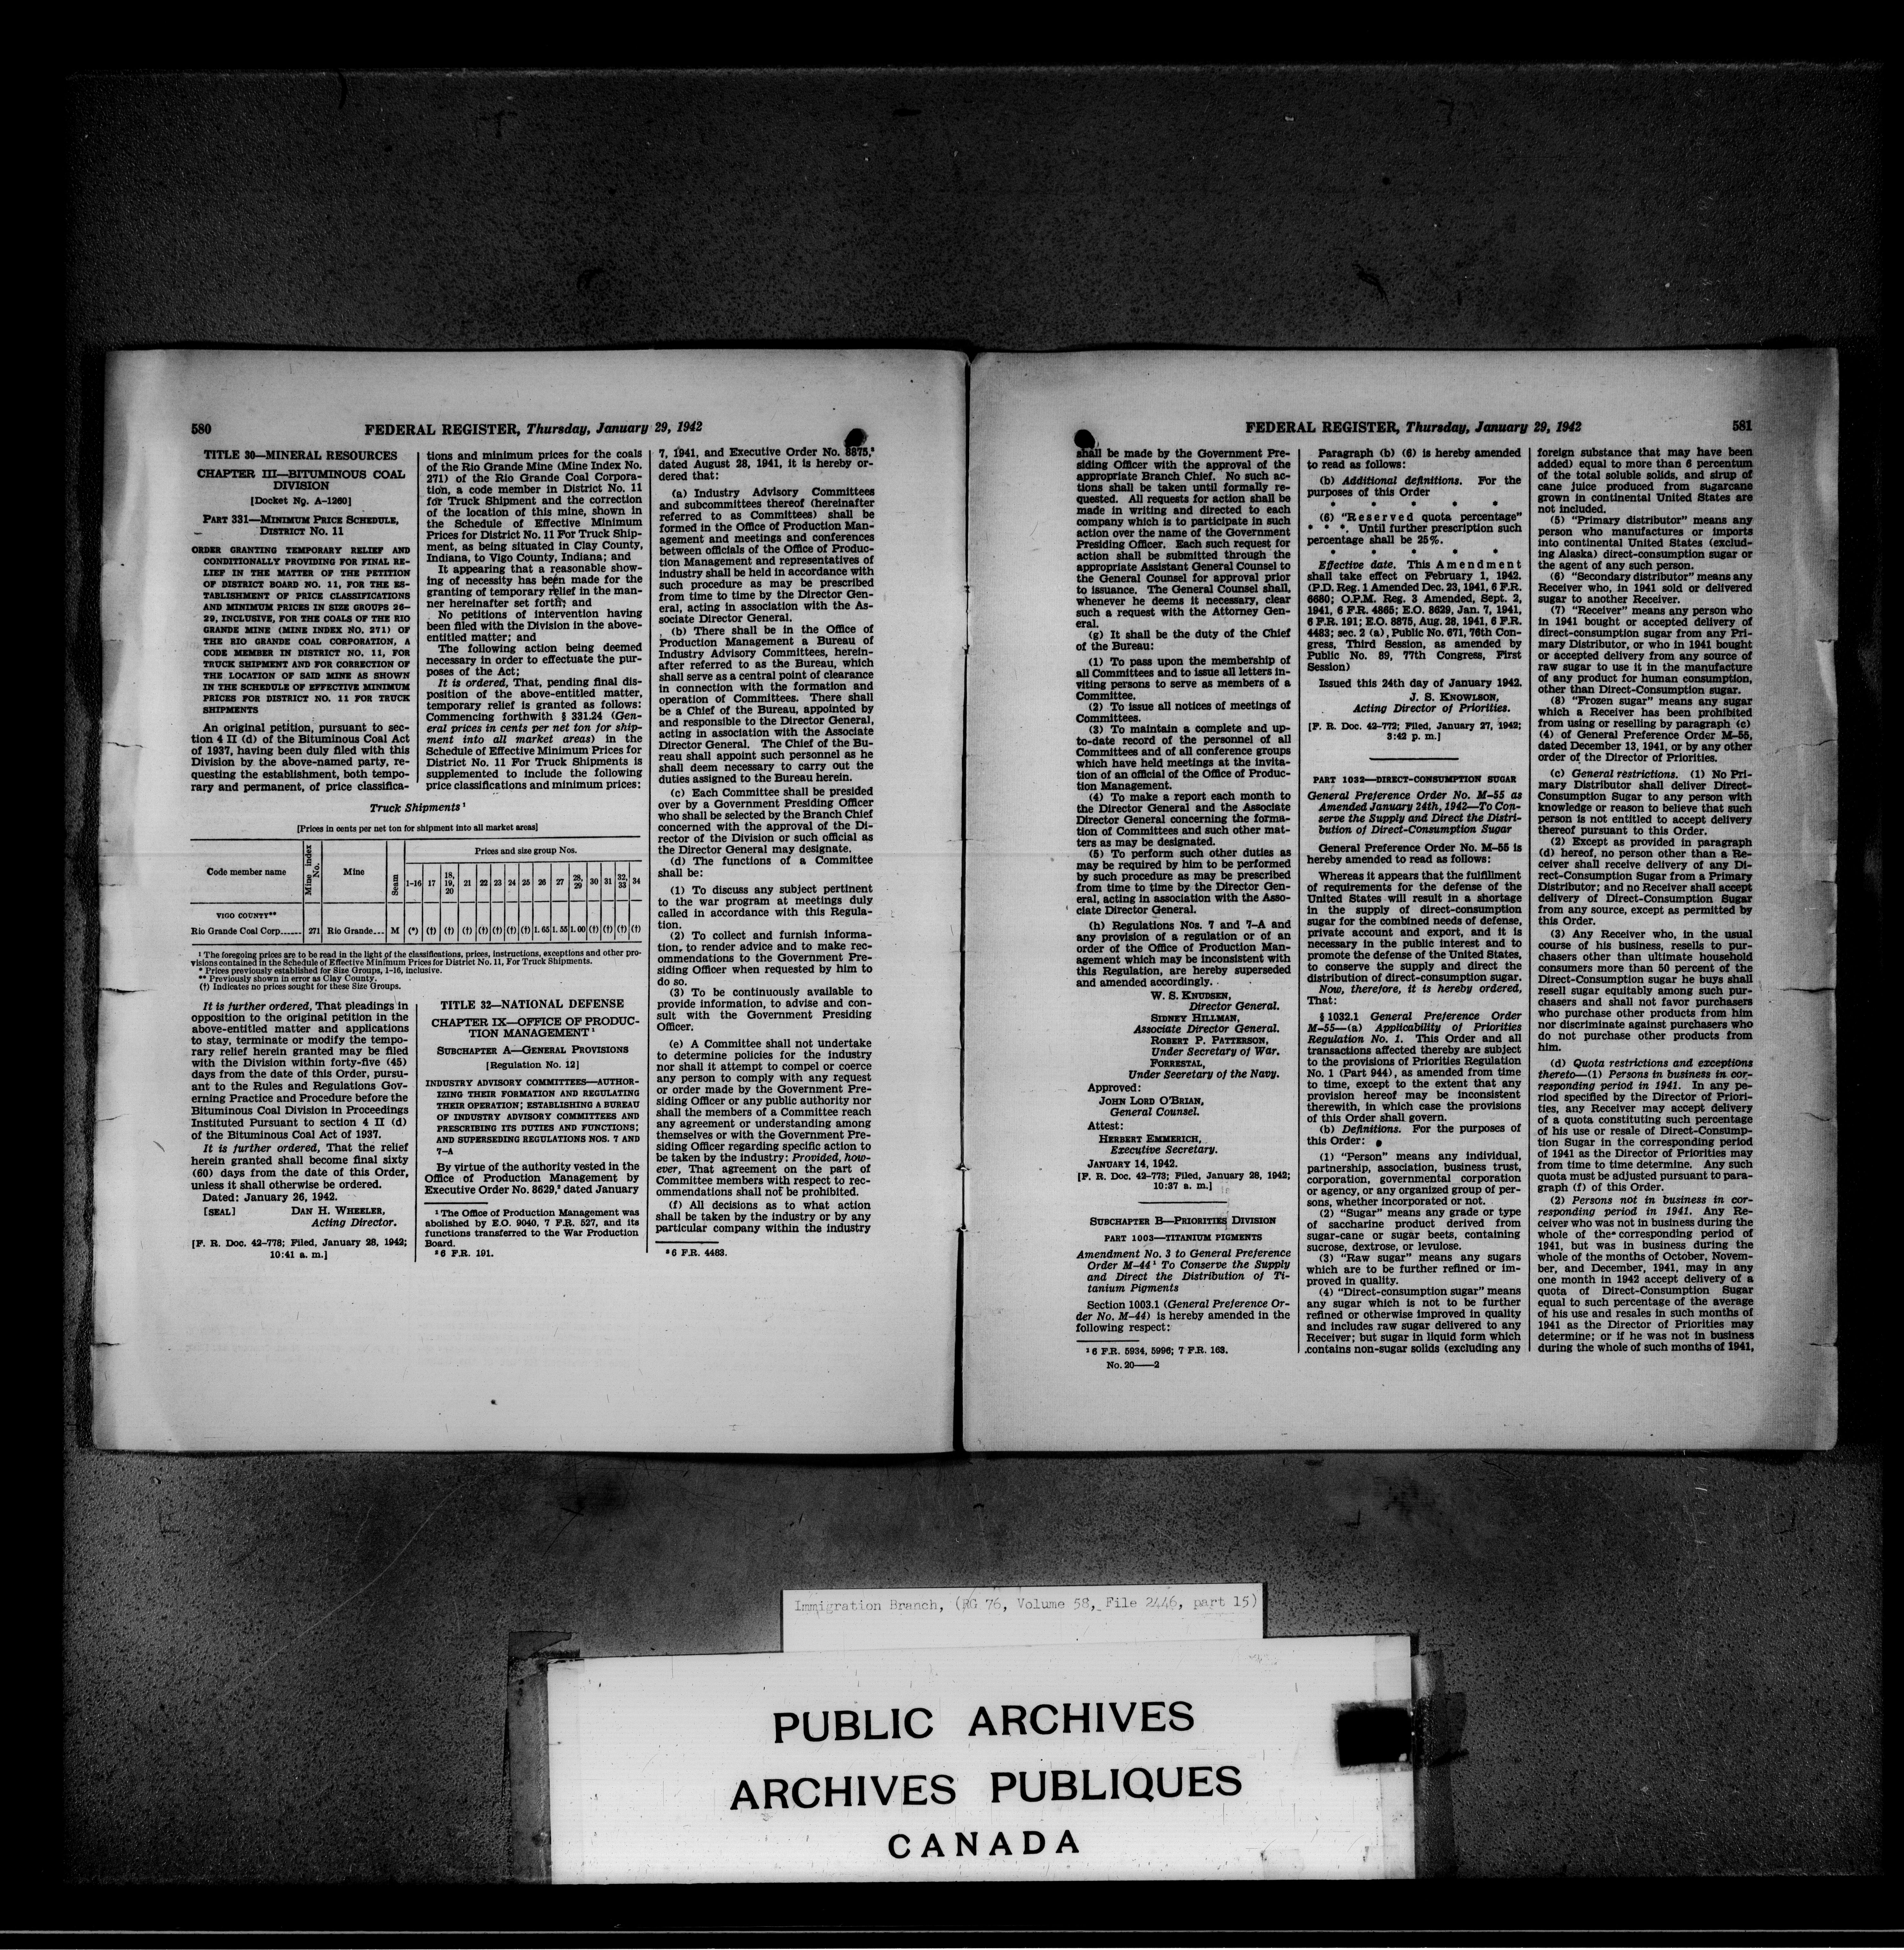 580
FEDERAL REGISTER, Thursday, January 29, 1942
TITLE 30—MINERAL RESOURCES
CHAPTER III—BITUMINOUS COAL
DIVISION
[Docket No. A-1260]
PART 331—MINIMUM PRICE SCHEDULE,
DISTRICT NO. 11
ORDER GRANTING TEMPORARY RELIEF AND
CONDITIONALLY PROVIDING FOR FINAL RE-
LIEF IN THE MATTER OF THE PETITION
OF DISTRICT BOARD NO. 11, FOR THE ES-
TABLISHMENT OF PRICE CLASSIFICATIONS
AND MINIMUM PRICES IN SIZE GROUPS 26-
29, INCLUSIVE, FOR THE COALS OF THE RIO
GRANDE MINE (MINE INDEX NO. 271) OF
THE RIO GRANDE COAL CORPORATION, A
CODE MEMBER IN DISTRICT NO. 11, FOR
TRUCK SHIPMENT AND FOR CORRECTION OF
THE LOCATION OF SAID MINE AS SHOWN
IN THE SCHEDULE OF EFFECTIVE MINIMUM
PRICES FOR DISTRICT NO. 11 FOR TRUCK
SHIPMENTS
An original petition, pursuant to sec-
tion 4 II (d) of the Bituminous Coal Act
of 1937, having been duly filed with this
Division by the above-named party, re-
questing the establishment, both tempo-
rary and permanent, of price classifica-
tions and minimum prices for the coals
of the Rio Grande Mine (Mine Index No.
271) of the Rio Grande Coal Corpora-
tion, a code member in District No. 11
for Truck Shipment and the correction
of the location of this mine, shown in
the Schedule of Effective Minimum
Prices for District No. 11 For Truck Ship-
ment, as being situated in Clay County,
Indiana, to Vigo County, Indiana; and
It appearing that a reasonable show-
ing of necessity has been made for the
granting of temporary relief in the man-
ner hereinafter set forth; and
No petitions of intervention having
been filed with the Division in the above-
entitled matter; and
The following action being deemed
necessary in order to effectuate the pur-
poses of the Act;
It is ordered, That, pending final dis-
position of the above-entitled matter,
temporary relief is granted as follows:
Commencing forthwith § 331.24 (Gen-
eral prices in cents per net ton for ship-
ment into all market areas) in the
Schedule of Effective Minimum Prices for
District No. 11 For Truck Shipments is
supplemented to include the following
price classifications and minimum prices:
Truck Shipments ¹
[Prices in cents per net ton for shipment into all market areas]
Code member name | Mine index No. | Mine | Seam | Prices and size group Nos.
1-16 | 17 | 18, 19, 20 | 21 | 22 | 23 | 24 | 25 | 26 | 27 | 28, 29 | 30 | 31 | 32, 33 | 34
VIGO COUNTY**
Rio Grande Coal Corp...... | 271 | Rio Grande... | M | (*) | (†) | (†) | (†) | (†) | (†) | (†) | (†) | 1.65 | 1.55 | 1.00 | (†) | (†) | (†) | (†)
¹ The foregoing prices are to be read in the light of the classifications, prices, instructions, exceptions and other pro-
visions contained in the Schedule of Effective Minimum Prices for District No. 11, For Truck Shipments.
* Prices previously established for Size Groups, 1-16, inclusive.
** Previously shown in error as Clay County.
(†) Indicates no prices sought for these Size Groups.
It is further ordered, That pleadings in
opposition to the original petition in the
above-entitled matter and applications
to stay, terminate or modify the tempo-
rary relief herein granted may be filed
with the Division within forty-five (45)
days from the date of this Order, pursu-
ant to the Rules and Regulations Gov-
erning Practice and Procedure before the
Bituminous Coal Division in Proceedings
Instituted Pursuant to section 4 II (d)
of the Bituminous Coal Act of 1937.
It is further ordered, That the relief
herein granted shall become final sixty
(60) days from the date of this Order,
unless it shall otherwise be ordered.
Dated: January 26, 1942.
[SEAL] DAN H. WHEELER,
Acting Director.
[F. R. Doc. 42-778; Filed, January 28, 1942;
10:41 a. m.]
TITLE 32—NATIONAL DEFENSE
CHAPTER IX—OFFICE OF PRODUC-
TION MANAGEMENT ¹
SUBCHAPTER A—GENERAL PROVISIONS
[Regulation No. 12]
INDUSTRY ADVISORY COMMITTEES—AUTHOR-
IZING THEIR FORMATION AND REGULATING
THEIR OPERATION; ESTABLISHING A BUREAU
OF INDUSTRY ADVISORY COMMITTEES AND
PRESCRIBING ITS DUTIES AND FUNCTIONS;
AND SUPERSEDING REGULATIONS NOS. 7 AND
7-A
By virtue of the authority vested in the
Office of Production Management by
Executive Order No. 8629,² dated January
¹ The Office of Production Management was
abolished by E.O. 9040, 7 F.R. 527, and its
functions transferred to the War Production
Board.
² 6 F.R. 191.
7, 1941, and Executive Order No. 8875,³
dated August 28, 1941, it is hereby or-
dered that:
(a) Industry Advisory Committees
and subcommittees thereof (hereinafter
referred to as Committees) shall be
formed in the Office of Production Man-
agement and meetings and conferences
between officials of the Office of Produc-
tion Management and representatives of
industry shall be held in accordance with
such procedure as may be prescribed
from time to time by the Director Gen-
eral, acting in association with the As-
sociate Director General.
(b) There shall be in the Office of
Production Management a Bureau of
Industry Advisory Committees, herein-
after referred to as the Bureau, which
shall serve as a central point of clearance
in connection with the formation and
operation of Committees. There shall
be a Chief of the Bureau, appointed by
and responsible to the Director General,
acting in association with the Associate
Director General. The Chief of the Bu-
reau shall appoint such personnel as he
shall deem necessary to carry out the
duties assigned to the Bureau herein.
(c) Each Committee shall be presided
over by a Government Presiding Officer
who shall be selected by the Branch Chief
concerned with the approval of the Di-
rector of the Division or such official as
the Director General may designate.
(d) The functions of a Committee
shall be:
(1) To discuss any subject pertinent
to the war program at meetings duly
called in accordance with this Regula-
tion.
(2) To collect and furnish informa-
tion, to render advice and to make rec-
ommendations to the Government Pre-
siding Officer when requested by him to
do so.
(3) To be continuously available to
provide information, to advise and con-
sult with the Government Presiding
Officer.
(e) A Committee shall not undertake
to determine policies for the industry
nor shall it attempt to compel or coerce
any person to comply with any request
or order made by the Government Pre-
siding Officer or any public authority nor
shall the members of a Committee reach
any agreement or understanding among
themselves or with the Government Pre-
siding Officer regarding specific action to
be taken by the industry: Provided, how-
ever, That agreement on the part of
Committee members with respect to rec-
ommendations shall not be prohibited.
(f) All decisions as to what action
shall be taken by the industry or by any
particular company within the industry
³ 6 F.R. 4483.
FEDERAL REGISTER, Thursday, January 29, 1942
581
shall be made by the Government Pre-
siding Officer with the approval of the
appropriate Branch Chief. No such ac-
tions shall be taken until formally re-
quested. All requests for action shall be
made in writing and directed to each
company which is to participate in such
action over the name of the Government
Presiding Officer. Each such request for
action shall be submitted through the
appropriate Assistant General Counsel to
the General Counsel for approval prior
to issuance. The General Counsel shall,
whenever he deems it necessary, clear
such a request with the Attorney Gen-
eral.
(g) It shall be the duty of the Chief
of the Bureau:
(1) To pass upon the membership of
all Committees and to issue all letters in-
viting persons to serve as members of a
Committee.
(2) To issue all notices of meetings of
Committees.
(3) To maintain a complete and up-
to-date record of the personnel of all
Committees and of all conference groups
which have held meetings at the invita-
tion of an official of the Office of Produc-
tion Management.
(4) To make a report each month to
the Director General and the Associate
Director General concerning the forma-
tion of Committees and such other mat-
ters as may be designated.
(5) To perform such other duties as
may be required by him to be performed
by such procedure as may be prescribed
from time to time by the Director Gen-
eral, acting in association with the Asso-
ciate Director General.
(h) Regulations Nos. 7 and 7-A and
any provision of a regulation or of an
order of the Office of Production Man-
agement which may be inconsistent with
this Regulation, are hereby superseded
and amended accordingly.
W. S. KNUDSEN,
Director General.
SIDNEY HILLMAN,
Associate Director General.
ROBERT P. PATTERSON,
Under Secretary of War.
FORRESTAL,
Under Secretary of the Navy.
Approved:
JOHN LORD O'BRIAN,
General Counsel.
Attest:
HERBERT EMMERICH,
Executive Secretary.
JANUARY 14, 1942.
[F. R. Doc. 42-773; Filed, January 28, 1942;
10:37 a. m.]
SUBCHAPTER B—PRIORITIES DIVISION
PART 1003—TITANIUM PIGMENTS
Amendment No. 3 to General Preference
Order M-44 ¹ To Conserve the Supply
and Direct the Distribution of Ti-
tanium Pigments
Section 1003.1 (General Preference Or-
der No. M-44) is hereby amended in the
following respect:
¹ 6 F.R. 5934, 5996; 7 F.R. 163.
No. 20——2
Paragraph (b) (6) is hereby amended
to read as follows:
(b) Additional definitions. For the
purposes of this Order
* * * * *
(6) "Reserved quota percentage"
* * *. Until further prescription such
percentage shall be 25%.
* * * * *
Effective date. This Amendment
shall take effect on February 1, 1942.
(P.D. Reg. 1 Amended Dec. 23, 1941, 6 F.R.
6680; O.P.M. Reg. 3 Amended, Sept. 2,
1941, 6 F.R. 4865; E.O. 8629, Jan. 7, 1941,
6 F.R. 191; E.O. 8875, Aug. 28, 1941, 6 F.R.
4483; sec. 2 (a), Public No. 671, 76th Con-
gress, Third Session, as amended by
Public No. 89, 77th Congress, First
Session)
Issued this 24th day of January 1942.
J. S. KNOWLSON,
Acting Director of Priorities.
[F. R. Doc. 42-772; Filed, January 27, 1942;
3:42 p. m.]
PART 1032—DIRECT-CONSUMPTION SUGAR
General Preference Order No. M-55 as
Amended January 24th, 1942—To Con-
serve the Supply and Direct the Distri-
bution of Direct-Consumption Sugar
General Preference Order No. M-55 is
hereby amended to read as follows:
Whereas it appears that the fulfillment
of requirements for the defense of the
United States will result in a shortage
in the supply of direct-consumption
sugar for the combined needs of defense,
private account and export, and it is
necessary in the public interest and to
promote the defense of the United States,
to conserve the supply and direct the
distribution of direct-consumption sugar.
Now, therefore, it is hereby ordered,
That:
§ 1032.1 General Preference Order
M-55—(a) Applicability of Priorities
Regulation No. 1. This Order and all
transactions affected thereby are subject
to the provisions of Priorities Regulation
No. 1 (Part 944), as amended from time
to time, except to the extent that any
provision hereof may be inconsistent
therewith, in which case the provisions
of this Order shall govern.
(b) Definitions. For the purposes of
this Order:
(1) "Person" means any individual,
partnership, association, business trust,
corporation, governmental corporation
or agency, or any organized group of per-
sons, whether incorporated or not.
(2) "Sugar" means any grade or type
of saccharine product derived from
sugar-cane or sugar beets, containing
sucrose, dextrose, or levulose.
(3) "Raw sugar" means any sugars
which are to be further refined or im-
proved in quality.
(4) "Direct-consumption sugar" means
any sugar which is not to be further
refined or otherwise improved in quality
and includes raw sugar delivered to any
Receiver; but sugar in liquid form which
contains non-sugar solids (excluding any
foreign substance that may have been
added) equal to more than 6 percentum
of the total soluble solids, and sirup of
cane juice produced from sugarcane
grown in continental United States are
not included.
(5) "Primary distributor" means any
person who manufactures or imports
into continental United States (exclud-
ing Alaska) direct-consumption sugar or
the agent of any such person.
(6) "Secondary distributor" means any
Receiver who, in 1941 sold or delivered
sugar to another Receiver.
(7) "Receiver" means any person who
in 1941 bought or accepted delivery of
direct-consumption sugar from any Pri-
mary Distributor, or who in 1941 bought
or accepted delivery from any source of
raw sugar to use it in the manufacture
of any product for human consumption,
other than Direct-Consumption sugar.
(8) "Frozen sugar" means any sugar
which a Receiver has been prohibited
from using or reselling by paragraph (c)
(4) of General Preference Order M-55,
dated December 13, 1941, or by any other
order of the Director of Priorities.
(c) General restrictions. (1) No Pri-
mary Distributor shall deliver Direct-
Consumption Sugar to any person with
knowledge or reason to believe that such
person is not entitled to accept delivery
thereof pursuant to this Order.
(2) Except as provided in paragraph
(d) hereof, no person other than a Re-
ceiver shall receive delivery of any Di-
rect-Consumption Sugar from a Primary
Distributor; and no Receiver shall accept
delivery of Direct-Consumption Sugar
from any source, except as permitted by
this Order.
(3) Any Receiver who, in the usual
course of his business, resells to pur-
chasers other than ultimate household
consumers more than 50 percent of the
Direct-Consumption sugar he buys shall
resell sugar equitably among such pur-
chasers and shall not favor purchasers
who purchase other products from him
nor discriminate against purchasers who
do not purchase other products from
him.
(d) Quota restrictions and exceptions
thereto—(1) Persons in business in cor-
responding period in 1941. In any pe-
riod specified by the Director of Priori-
ties, any Receiver may accept delivery
of a quota constituting such percentage
of his use or resale of Direct-Consump-
tion Sugar in the corresponding period
of 1941 as the Director of Priorities may
from time to time determine. Any such
quota must be adjusted pursuant to para-
graph (f) of this Order.
(2) Persons not in business in cor-
responding period in 1941. Any Re-
ceiver who was not in business during the
whole of the corresponding period of
1941, but was in business during the
whole of the months of October, Novem-
ber, and December, 1941, may in any
one month in 1942 accept delivery of a
quota of Direct-Consumption Sugar
equal to such percentage of the average
of his use and resales in such months of
1941 as the Director of Priorities may
determine; or if he was not in business
during the whole of such months of 1941,
Immigration Branch, (RG 76, Volume 58, File 2446, part 15)
PUBLIC ARCHIVES
ARCHIVES PUBLIQUES
CANADA